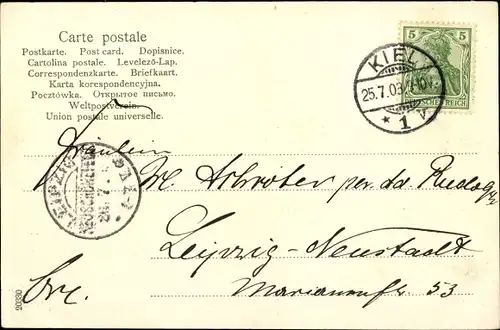 Carte postale
Postkarte. Post card. Dopisnice.
Cartolina postale. Levelező-Lap.
Correspondenzkarte. Briefkaart.
Karta korespondencyjna.
Pocztówka. Открытое письмо.
Weltpostverein.
Union postale universelle.
5 5
KIEL
25.7.03
* 1 v.
DEUTSCHES REICH
LEIPZIG
Fräulein
M. Schröter per. ad.
Leipzig-Neustadt
53
20330